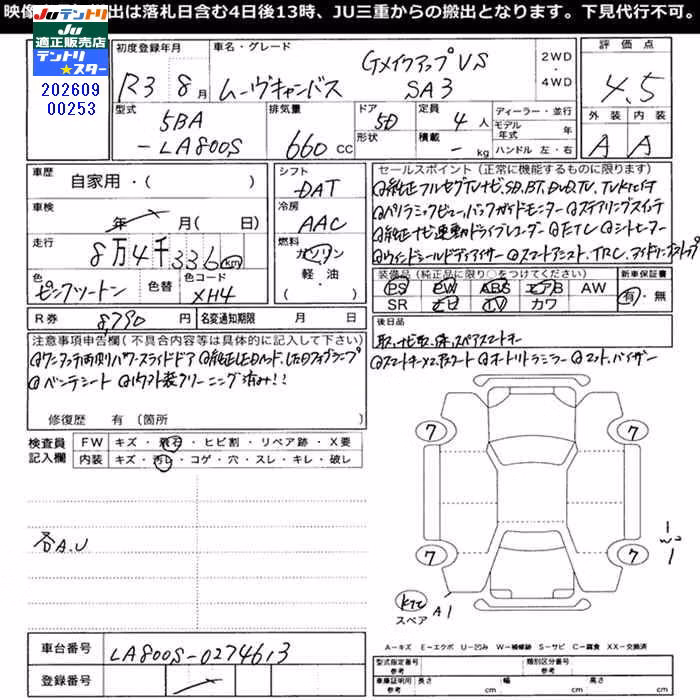 映像 出は落札日含む4日後13時、JU三重からの搬出となります。下見代行不可。
JUテントリ
JU適正販売店
テントリ
スター
202609
00253
初度登録年月
R3 8月
車名・グレード
Gメイクアップ VS
ムーヴキャンバス SA3
2WD
4WD
評価点
4.5
外装 内装
A A
型式
5BA
-LA800S
排気量
660 CC
ドア 5D
形状
定員 4 人
積載 - kg
ディーラー・並行
モデル年式 年
ハンドル 左・右
車歴
自家用・( )
シフト
DAT
車検
年 月( 日)
冷房
AAC
走行
8万4千336km
燃料
ガソリン
軽油
( )
色
ピンクツートン
色替
色コード
XH4
R券 8,790 円
名変通知期限 月 日
セールスポイント(正常に機能するものに限ります)
◎純正フルセグTVナビ,SD,BT,DVD,TV,
◎パノラミックビュー,バックガイドモニター ◎ステアリングスイッチ
◎純正ナビ連動ドライブレコーダー ◎ETC ◎シートヒーター
◎ウィンドシールドディアイサー ◎スマートアシスト,TRC,アイドリングストップ
装備品(純正品に限り○をつけてください)
PS PW ABS エアB AW
SR ナビ TV カワ
新車保証書
有・無
後日品
取,ナビ取,保,スペアスマートキー
注意事項申告欄(不具合内容等は具体的に記入して下さい)
◎ワンタッチ両側パワースライドドア ◎純正LEDヘッド,LEDフォグランプ
◎スマートキー×2, ◎オートリトラミラー ◎マット,バイザー
◎ベンチシート ◎内外装クリーニング済み!!
修復歴 有 (箇所 )
検査員
記入欄
FW キズ・飛石・ヒビ割・リペア跡・X要
内装 キズ・汚レ・コゲ・穴・スレ・キレ・破レ
各A.U
7 7
7 7
W2
スペア
A1
車台番号 LA800S-0274613
登録番号
A-キズ E-エクボ U-凹み W-補修跡 S-サビ C-腐食 XX-交換済
型式指定番号 参考
類別区分番号 参考
車庫証明用 参考 長さ cm 幅 cm 高さ cm